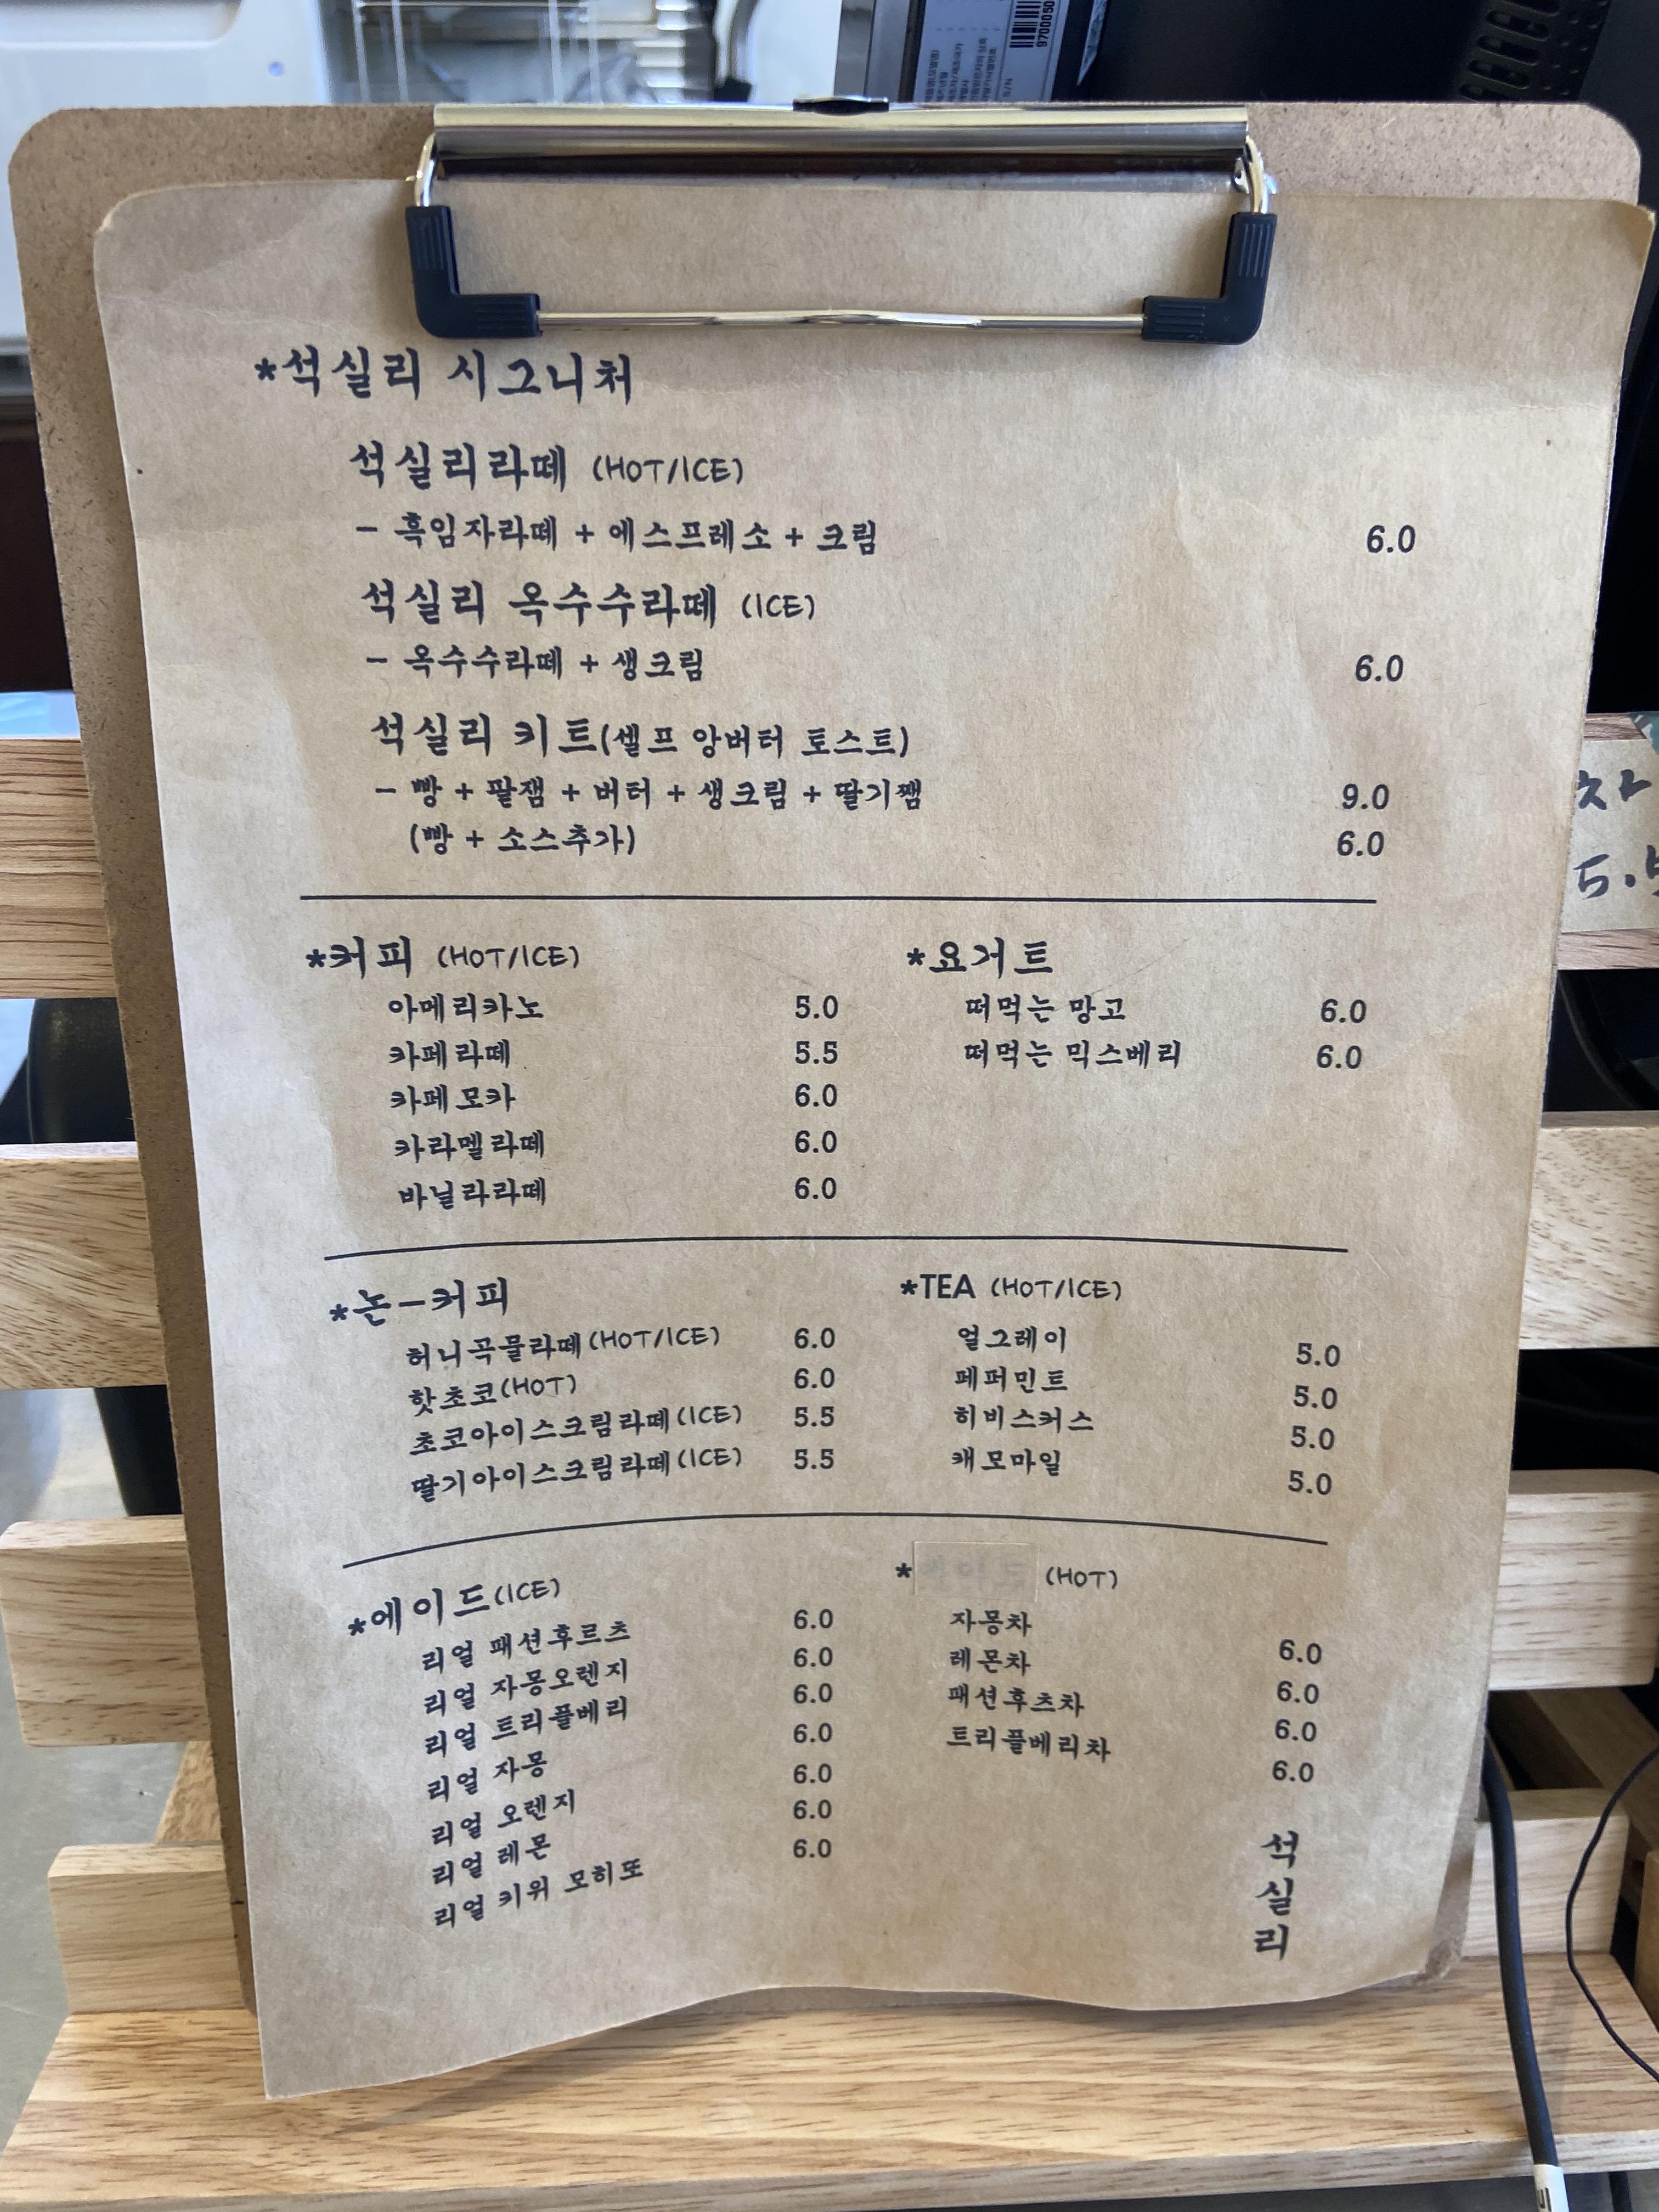 *석실리 시그니처
석실리라떼 (HOT/ICE)
- 흑임자라떼 + 에스프레소 + 크림 6.0
석실리 옥수수라떼 (ICE)
- 옥수수라떼 + 생크림 6.0
석실리 키트(셀프 앙버터 토스트)
- 빵 + 팥잼 + 버터 + 생크림 + 딸기쨈 9.0
(빵 + 소스추가) 6.0
*커피 (HOT/ICE)
아메리카노 5.0
카페라떼 5.5
카페모카 6.0
카라멜라떼 6.0
바닐라라떼 6.0
*요거트
떠먹는 망고 6.0
떠먹는 믹스베리 6.0
*논-커피
허니곡물라떼(HOT/ICE) 6.0
핫초코(HOT) 6.0
초코아이스크림라떼(ICE) 5.5
딸기아이스크림라떼(ICE) 5.5
*TEA (HOT/ICE)
얼그레이 5.0
페퍼민트 5.0
히비스커스 5.0
캐모마일 5.0
*에이드(ICE)
리얼 패션후르츠 6.0
리얼 자몽오렌지 6.0
리얼 트리플베리 6.0
리얼 자몽 6.0
리얼 오렌지 6.0
리얼 레몬 6.0
리얼 키위 모히또 6.0
* (HOT)
자몽차 6.0
레몬차 6.0
패션후츠차 6.0
트리플베리차 6.0
석
실
리
차
9700050
S/N